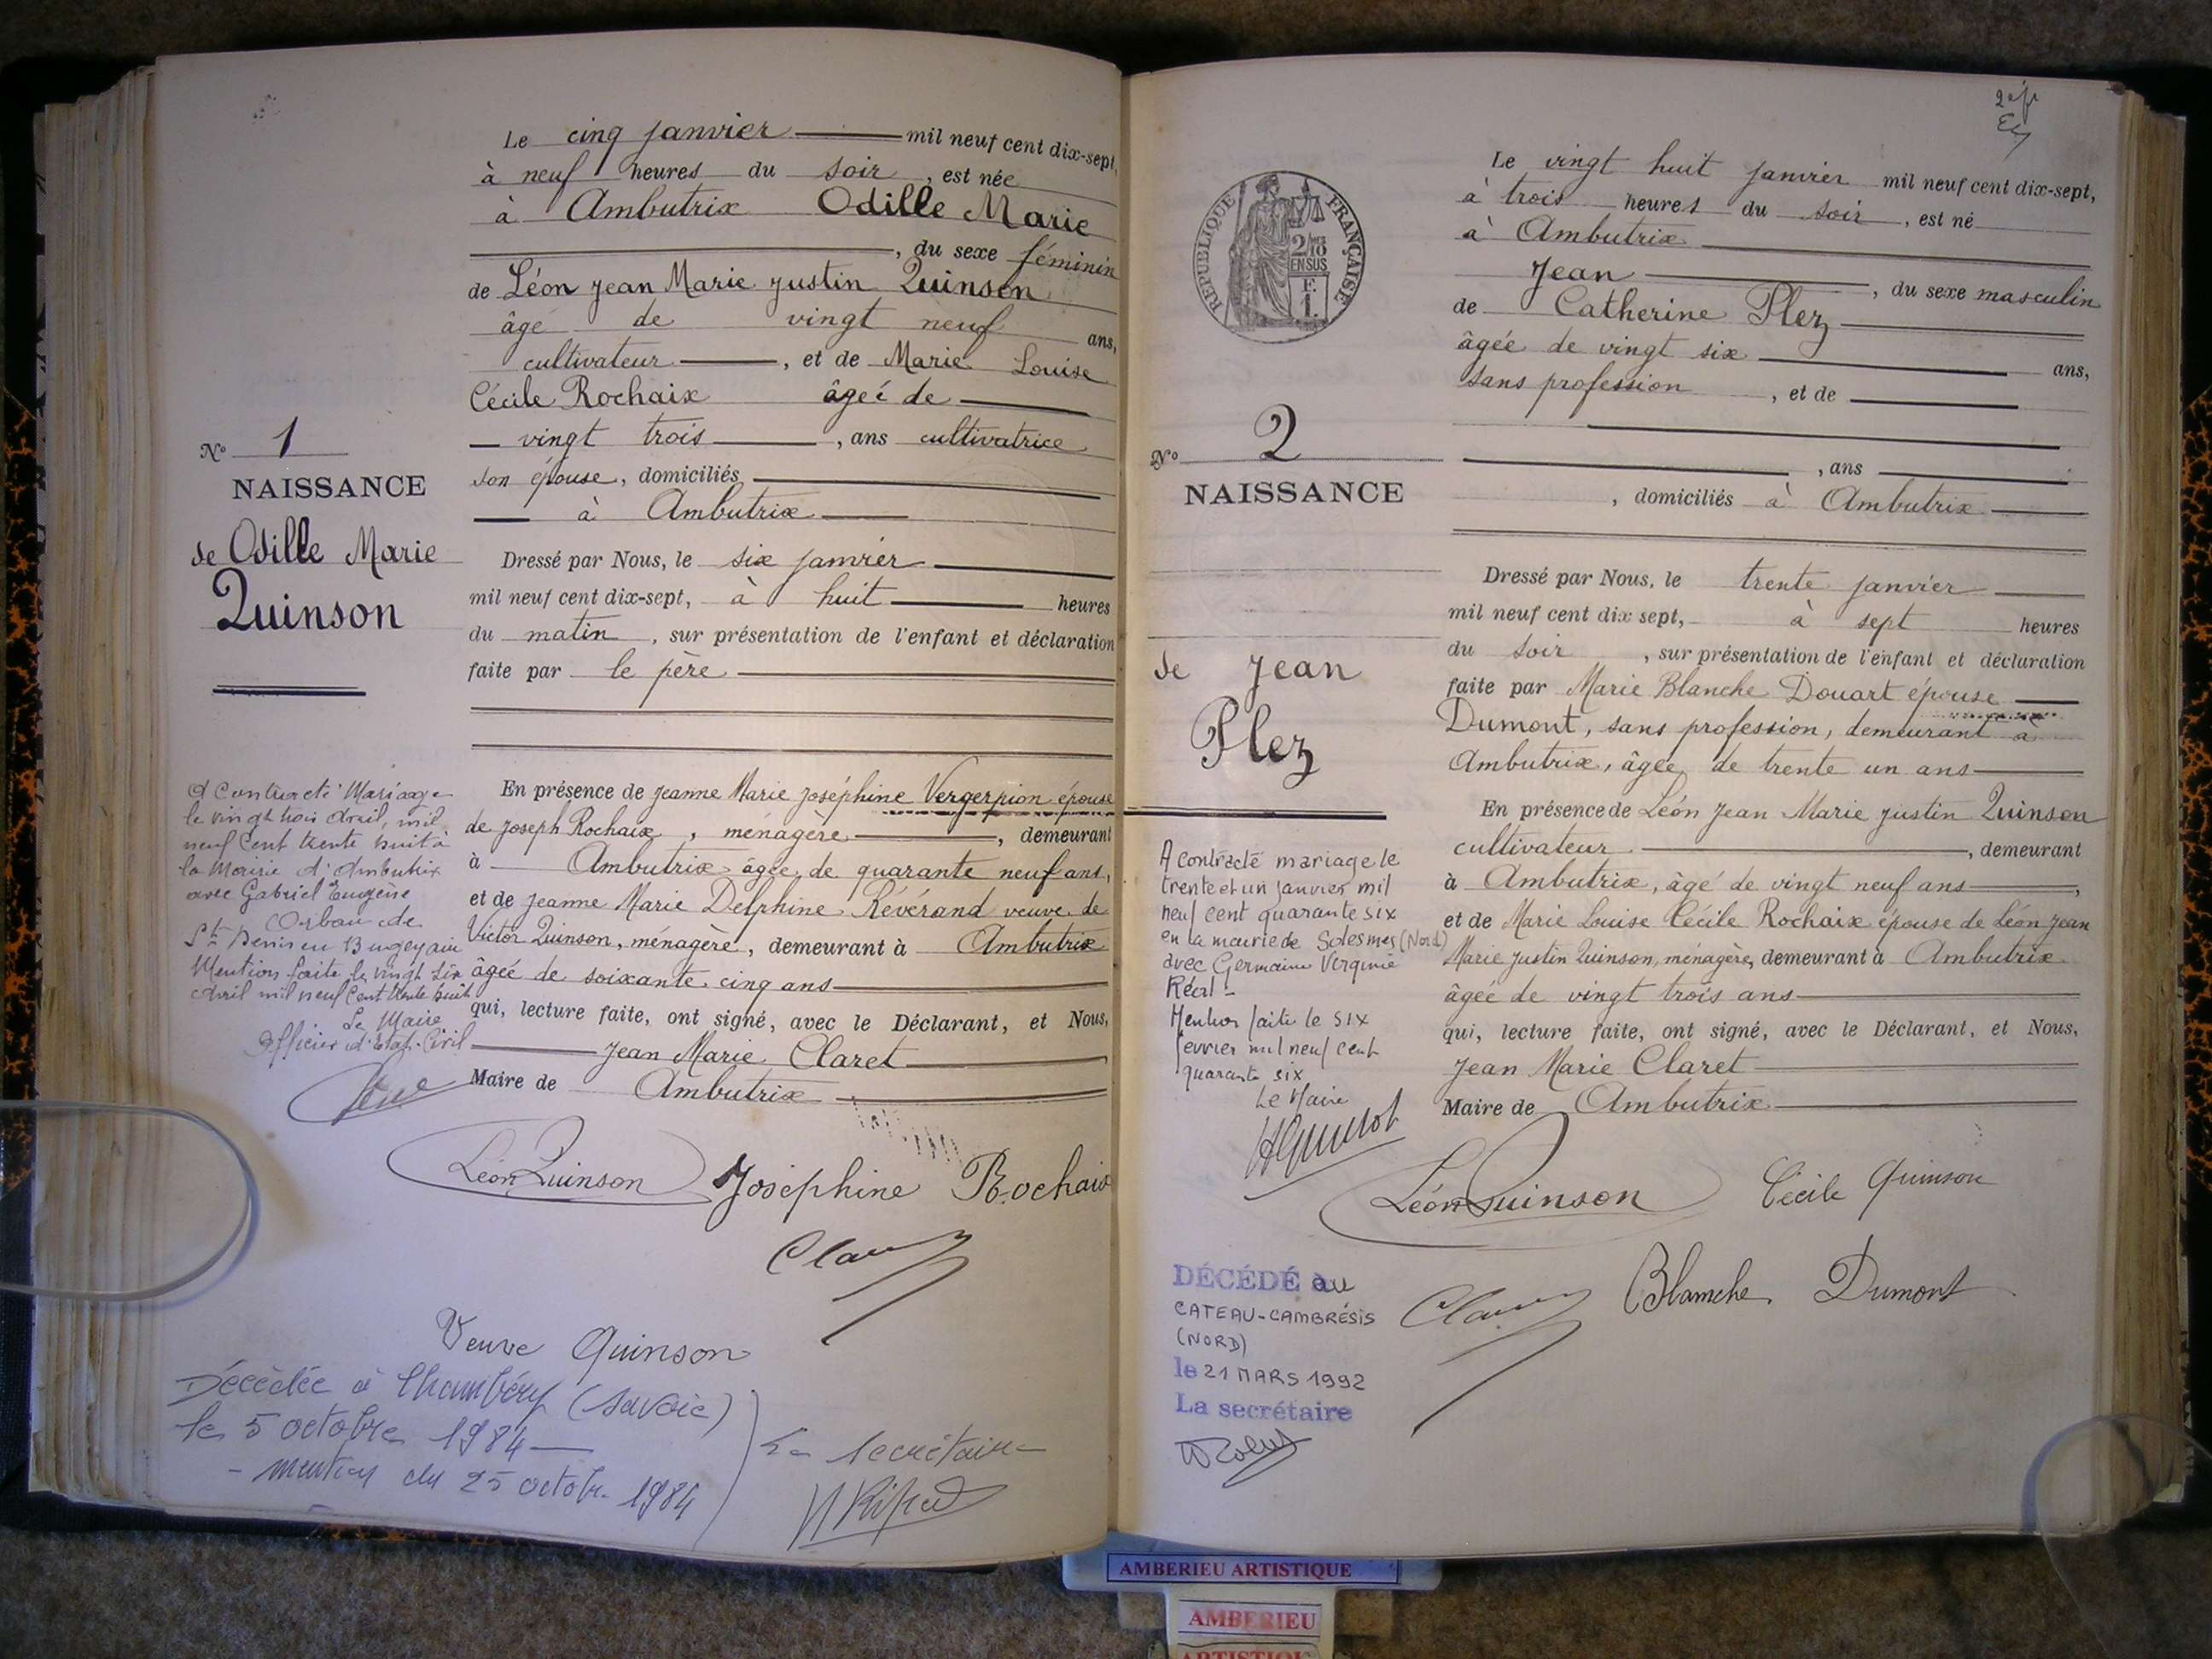 Le cinq janvier mil neuf cent dix-sept,
à neuf heures du soir, est née
à Ambutrix Odille Marie
, du sexe féminin
de Léon Jean Marie Justin Quinson
âgé de vingt neuf ans,
cultivateur, et de Marie Louise
Cécile Rochaix âgée de
vingt trois, ans cultivatrice
son épouse, domiciliés
à Ambutrix
No 1
NAISSANCE
de Odille Marie
Quinson
Dressé par Nous, le six janvier
mil neuf cent dix-sept, à huit heures
du matin, sur présentation de l'enfant et déclaration
faite par le père
En présence de Jeanne Marie Joséphine Vergerpion épouse
de Joseph Rochaix, ménagère, demeurant
à Ambutrix âgée de quarante neuf ans,
et de Jeanne Marie Delphine Révérand veuve de
Victor Quinson, ménagère, demeurant à Ambutrix
âgée de soixante cinq ans
qui, lecture faite, ont signé, avec le Déclarant, et Nous,
Jean Marie Claret
Maire de Ambutrix
A Contracté Mariage
le vingt trois Avril, mil
neuf Cent trente huit à
la Mairie d'Ambutrix
avec Gabriel Eugène
Orban de
St Denis en Bugey ain
Mention faite le vingt six
Avril mil neuf Cent trente huit
Le Maire
Officier d'Etat-Civil
Léon Quinson Joséphine Rochaix
Veuve Quinson
Décédée à Chambéry (Savoie)
le 5 octobre 1984
- mention du 25 octobre 1984
La secrétaire
2e f
Le vingt huit janvier mil neuf cent dix-sept,
à trois heures du soir, est né
à Ambutrix
Jean, du sexe masculin
de Catherine Plez
âgée de vingt six ans,
sans profession, et de
, ans
, domiciliés à Ambutrix
REPUBLIQUE FRANÇAISE
2/10
EN SUS
F.
1.
No 2
NAISSANCE
de Jean
Plez
Dressé par Nous, le trente janvier
mil neuf cent dix sept, à sept heures
du soir, sur présentation de l'enfant et déclaration
faite par Marie Blanche Douart épouse
Dumont, sans profession, demeurant à
Ambutrix, âgée de trente un ans
En présence de Léon Jean Marie Justin Quinson
cultivateur, demeurant
à Ambutrix, âgé de vingt neuf ans,
et de Marie Louise Cécile Rochaix épouse de Léon Jean
Marie Justin Quinson, ménagère, demeurant à Ambutrix
âgée de vingt trois ans
qui, lecture faite, ont signé, avec le Déclarant, et Nous,
Jean Marie Claret
Maire de Ambutrix
A contracté mariage le
trente et un janvier mil
neuf cent quarante six
en la mairie de Solesmes (Nord)
avec Germaine Virginie
Mention faite le six
fevrier mil neuf cent
quarante six
Le Maire
Léon Quinson Cécile Quinson
Blanche Dumont
DÉCÉDÉ au
CATEAU-CAMBRÉSIS
(NORD)
le 21 MARS 1992
La secrétaire
AMBERIEU ARTISTIQUE
AMBERIEU
ARTISTIQUE